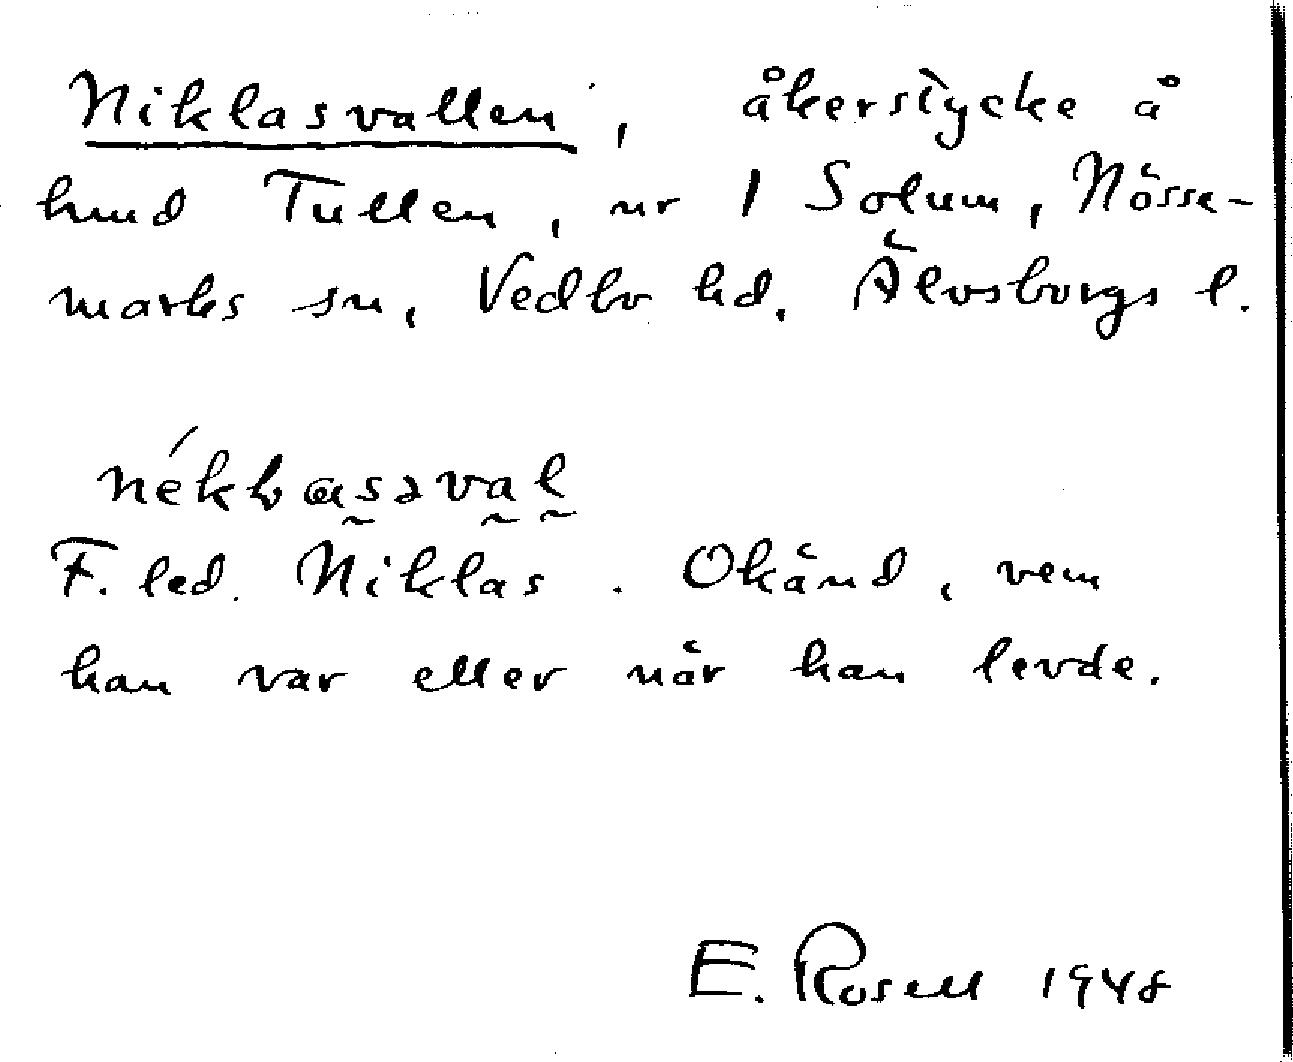 Niklasvallen, åkerstycke å
hmd Tullen, nr 1 Solum, Nösse-
marks sn, Vedbo hd. Älvsborgs l.
F. led. Niklas. Okänd, vem
han var eller när han levde.
E. Rosell 1948